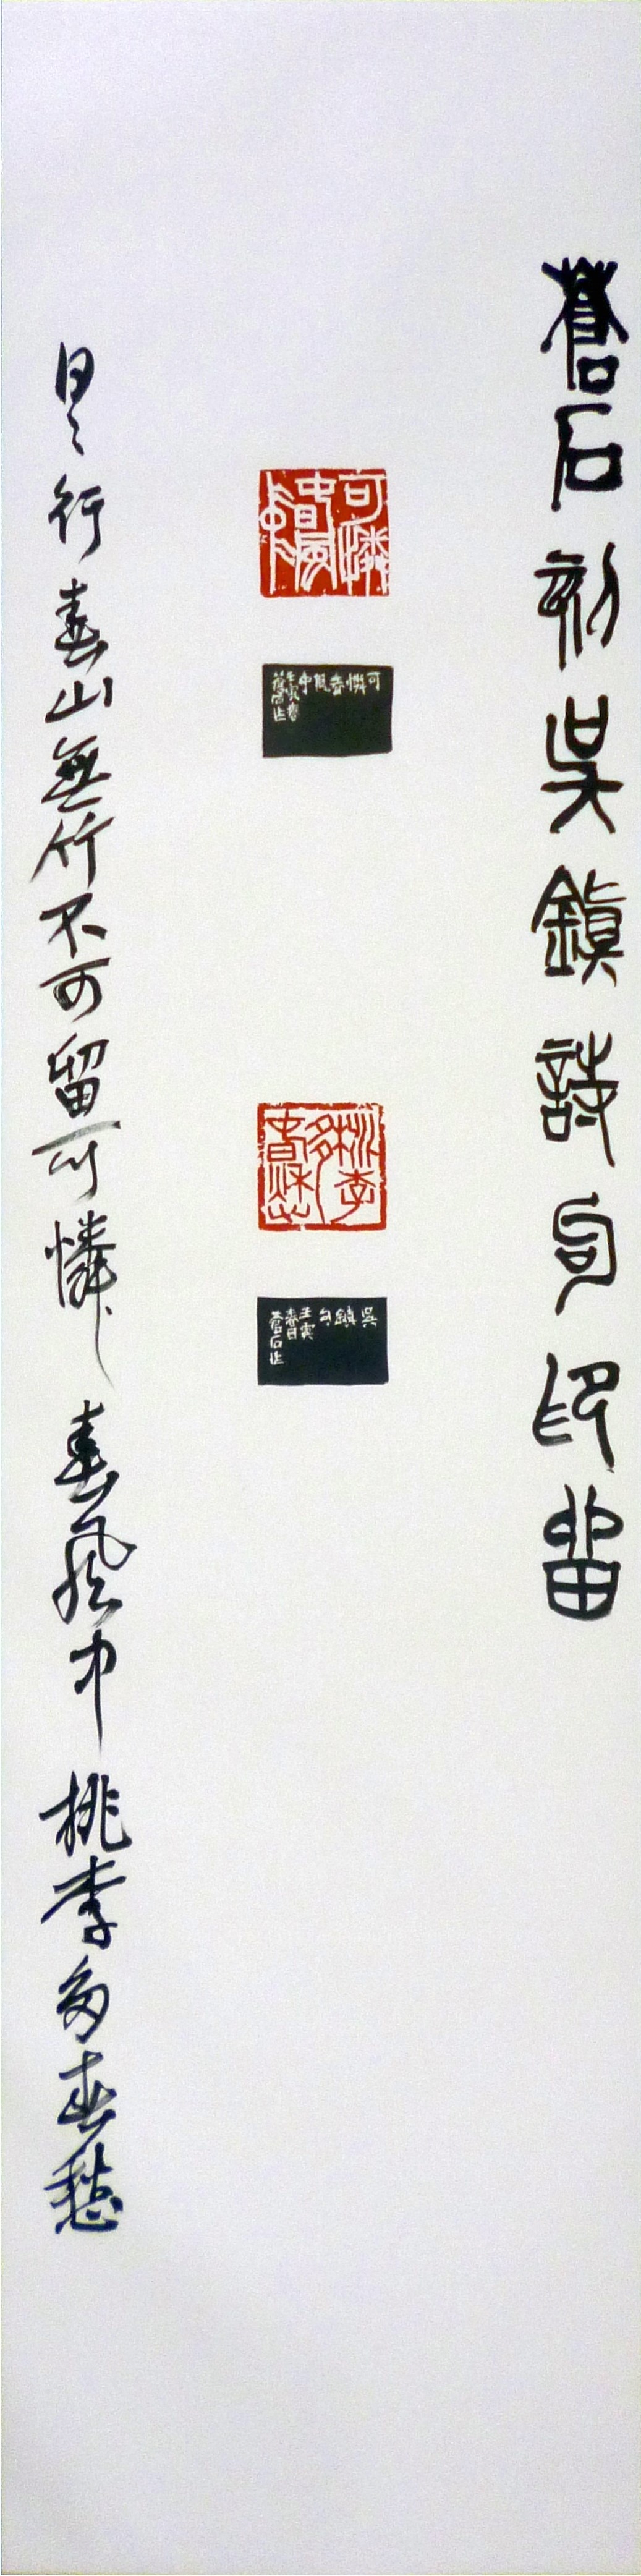 蒼石刻吳鎮詩句印留
可憐
春風
中
可
憐
春
風
中
壬寅春
蒼石作
桃李
多
春愁
吳
鎮
句
壬寅
春日
蒼石作
日日行春山無竹不可留可憐春風中桃李多春愁